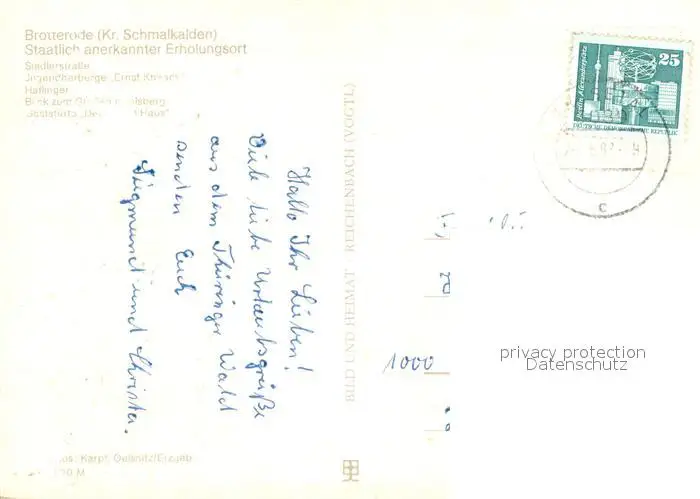 Brotterode (Kr. Schmalkalden)
Staatlich anerkannter Erholungsort
Siedlerstraße
Jugendherberge „Ernst
Haflinger
Blick zum Großen Inselsberg
Gaststätte Haus"
Hallo Ihr Lieben!
Viele liebe Urlaubsgrüße
aus dem Thüringer Wald
senden Euch
Siegmund und Christa.
BILD UND HEIMAT REICHENBACH (VOGTL)
25
Berlin, Alexanderplatz
DEUTSCHE DEMOKRATISCHE REPUBLIK
c
1000
privacy protection
Datenschutz
Karpf, Geßnitz/Erzgeb.
M